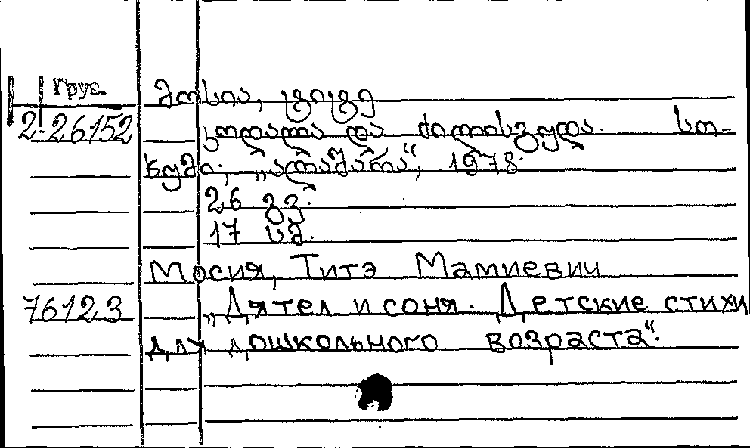 Груз. მოსია, ტიტე
2-26152 კოდალა და ძილისგუდა. სო-
ხუმი, „ალაშარა“, 1978.
26 გვ.
17 სმ.
Мосия, Титэ Мамиевич
76123 „Дятел и соня. Детские стихи
для дошкольного возраста“.